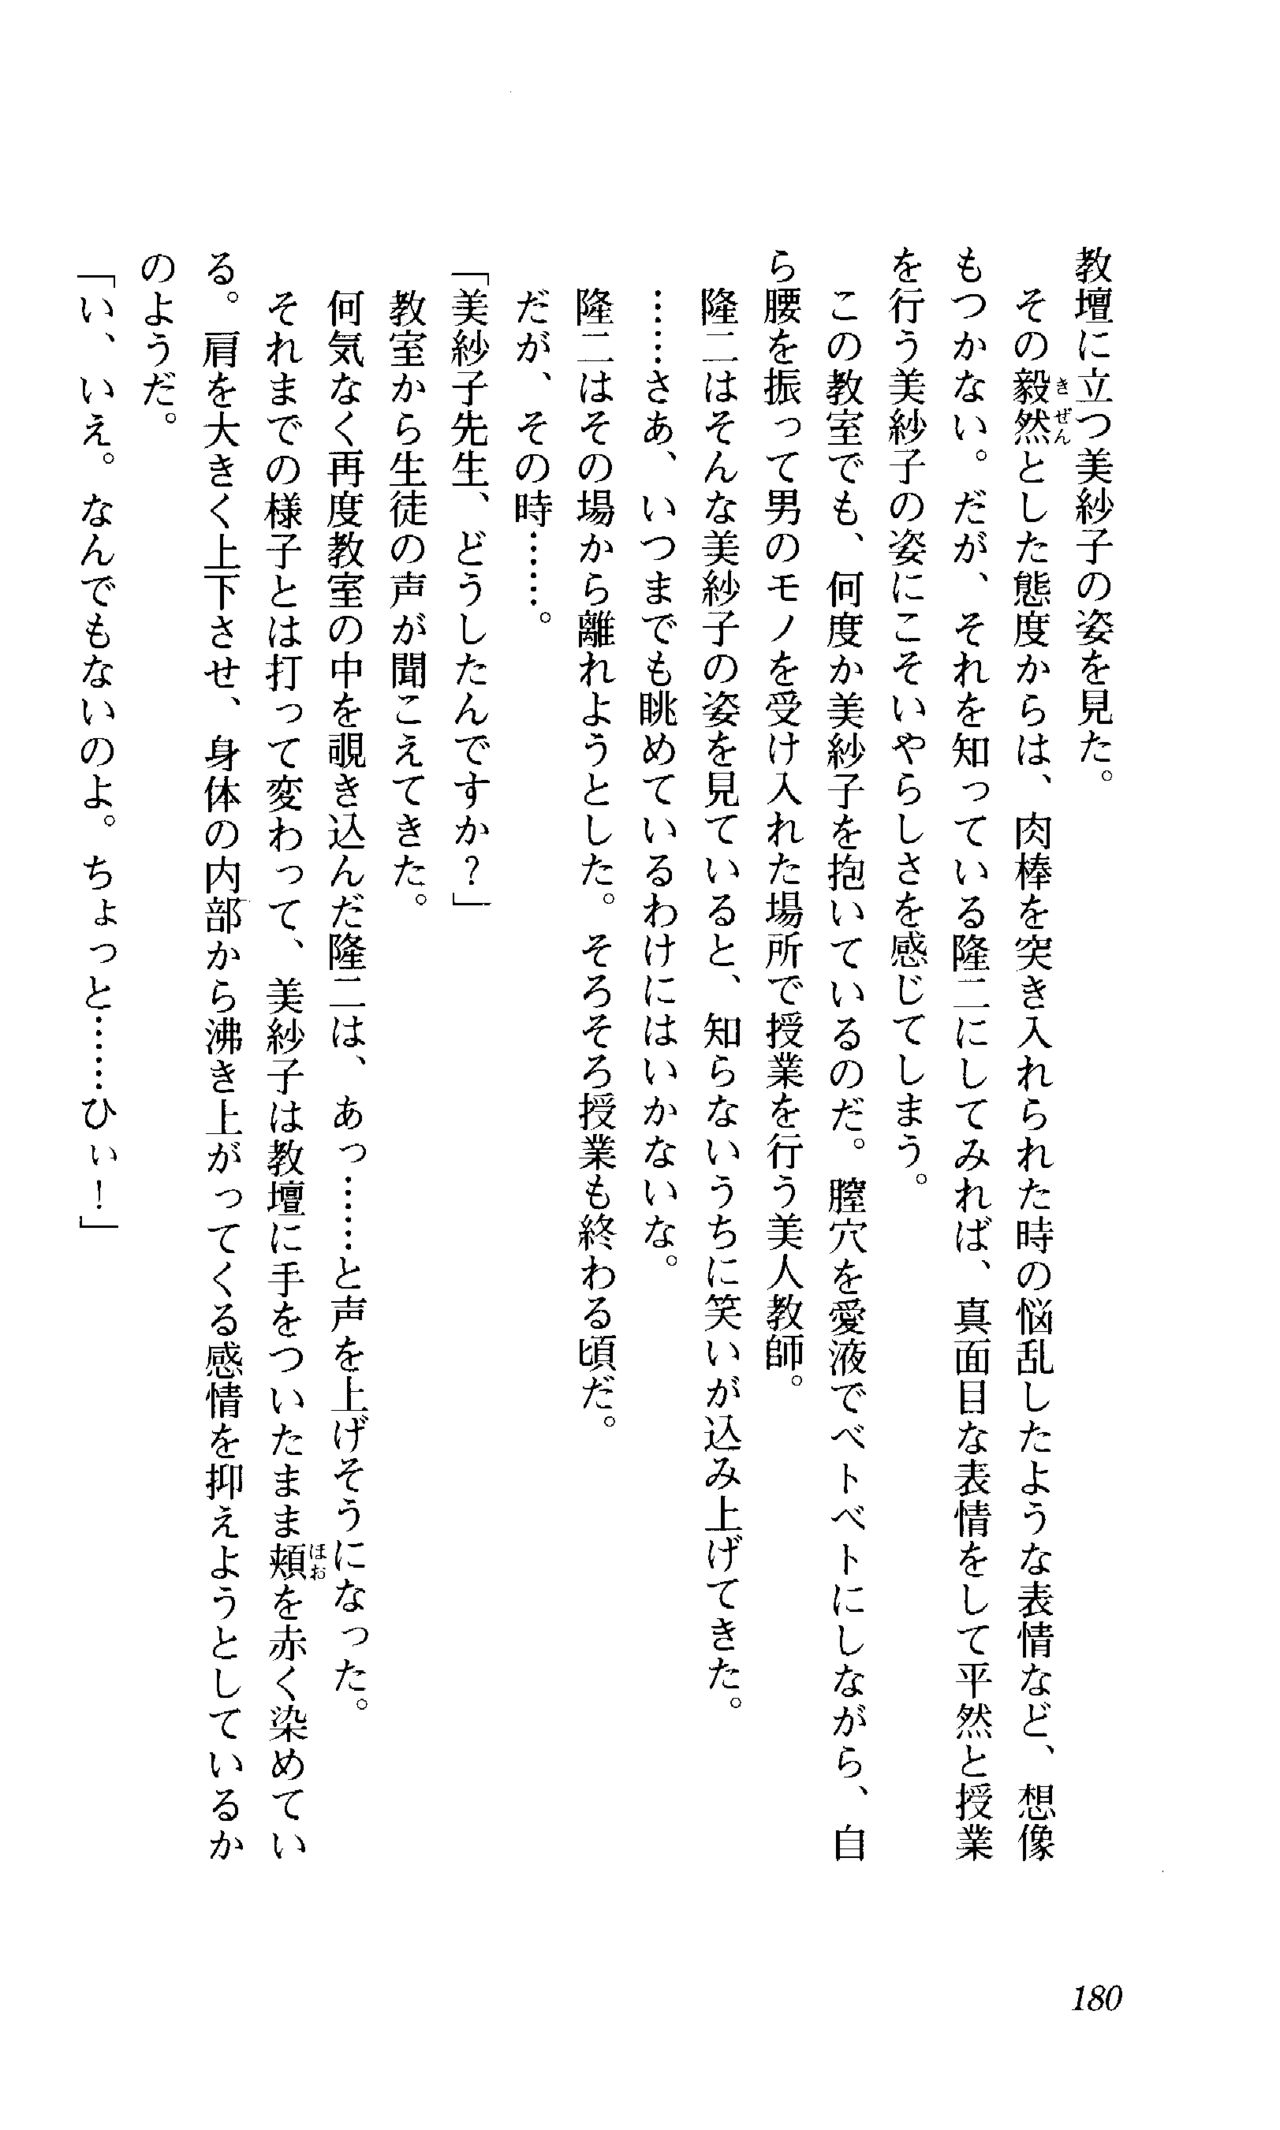 教壇に立つ美紗子の姿を見た。
その毅然とした態度からは、肉棒を突き入れられた時の悩乱したような表情など、想像
きぜん
もつかない。だが、それを知っている隆二にしてみれば、真面目な表情をして平然と授業
を行う美紗子の姿にこそいやらしさを感じてしまう。
この教室でも、何度か美紗子を抱いているのだ。膣穴を愛液でベトベトにしながら、自
ら腰を振って男のモノを受け入れた場所で授業を行う美人教師。
隆二はそんな美紗子の姿を見ていると、知らないうちに笑いが込み上げてきた。
……さあ、いつまでも眺めているわけにはいかないな。
隆二はその場から離れようとした。そろそろ授業も終わる頃だ。
だが、その時……。
「美紗子先生、どうしたんですか？」
教室から生徒の声が聞こえてきた。
何気なく再度教室の中を覗き込んだ隆二は、あっ……と声を上げそうになった。
それまでの様子とは打って変わって、美紗子は教壇に手をついたまま頬を赤く染めてい
ほお
る。肩を大きく上下させ、身体の内部から沸き上がってくる感情を抑えようとしているか
のようだ。
「い、いえ。なんでもないのよ。ちょっと……ひぃ！」
180